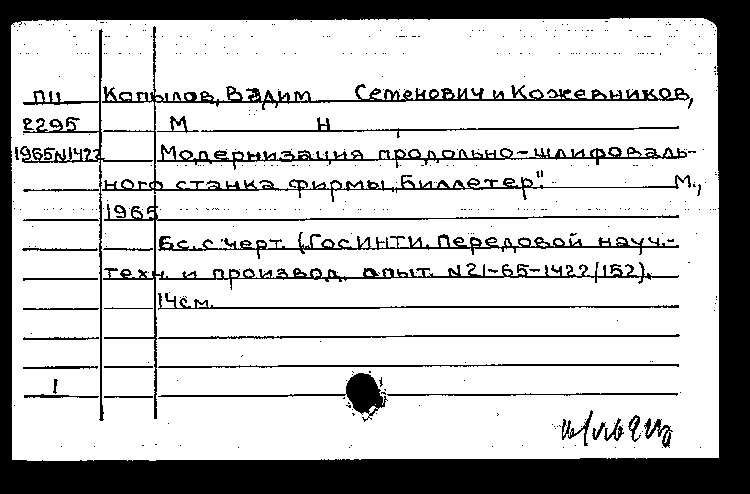 ПЦ Копылов, Вадим Семенович и Кожевников,
2295 М Н
1965N1422 Модернизация продольно-шлифоваль-
ного станка фирмы „Биллетер". М.,
1965
6с. с черт. (ГосИНТИ. Передовой науч.-
техн. и производ. опыт. N21-65-1422/152).
14см.
1